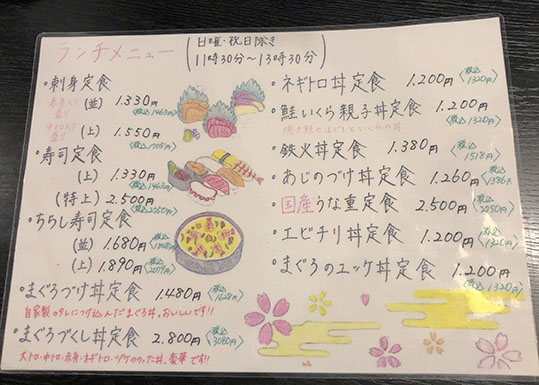 ランチメニュー (日曜・祝日除き
11時30分～13時30分)
・刺身定食
(並) 1.330円
〈税込1463円〉
(上) 1.550円
〈税込1705円〉
・寿司定食
(上) 1.330円
〈税込1463円〉
(特上) 2.500円
〈税込2750円〉
・ちらし寿司定食
(並) 1.680円
〈税込1848円〉
(上) 1.890円
〈税込2079円〉
・まぐろづけ丼定食 1.480円 〈税込1628円〉
自家製のタレにつけ込んだまぐろ丼、おいしいです!!
・まぐろづくし丼定食 2.800円 〈税込3080円〉
大トロ・中トロ・赤身・ネギトロ・ヅケののった丼、豪華です!!
・ネギトロ丼定食 1.200円 〈税込1320円〉
・鮭いくら親子丼定食 1.200円 〈税込1320円〉
焼き鮭のほぐしといくらの丼
・鉄火丼定食 1.380円 〈税込1518円〉
・あじのづけ丼定食 1.260円 〈税込1386円〉
・国産うな重定食 2.500円 〈税込2750円〉
・エビチリ丼定食 1.200円 〈税込1320円〉
・まぐろのユッケ丼定食 1.200円 〈税込1320円〉